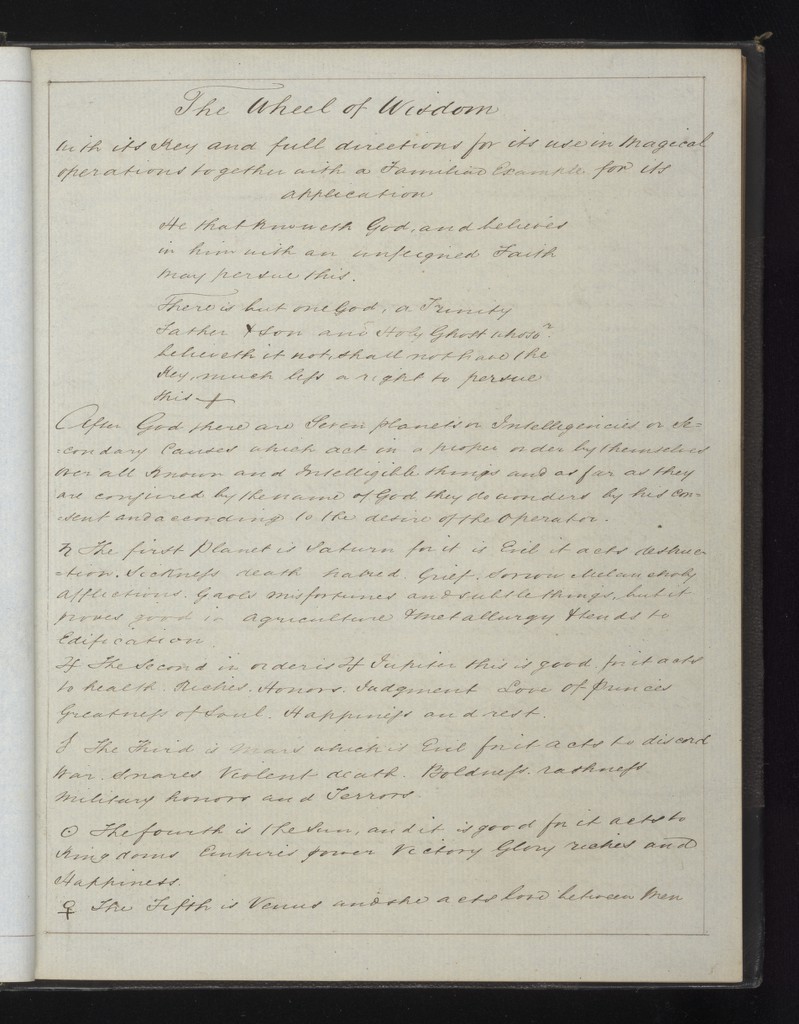 The Wheel of Wisdom
With its Key and full directions for its use in Magical
operations together with a Familiar Example for its
application
He that knoweth God, and believes
in him with an unfeigned Faith
may persue this.
There is but one God, a Trinity
Father & Son and Holy Ghost whoso.r
believeth it not, shall not have the
Key, much less a right to persue
this
After God there are Seven planets or Intellegencies or Se=
=condary Causes which act in a proper order by themselves
over all Known and Intelligible things and as far as they
are conjured by the name of God they do wonders by his con-
=sent and according to the desire of the Operator.
♄ The first Planet is Saturn for it is Evil it acts destruc-
-tion. Sickness death hatred. Grief. Sorrow Melancholy
afflictions. Gaols misfortunes and subtle things, but it
proves good in agriculture & metallurgy & tends to
Edification
♃ The Second in order is ♃ Jupiter this is good for it acts
to health. Riches. Honors. Judgment Love of Princes
Greatness of Soul. Happiness and rest.
♂ The Third is Mars which is Evil for it acts to discord
War. Snares Violent death. Boldness. rashness
military honors and Terrors
☉ The fourth is the Sun, and it is good for it acts to
Kingdoms Empires power Victory Glory riches and
Happiness.
♀ The Fifth is Venus and she acts love between Men